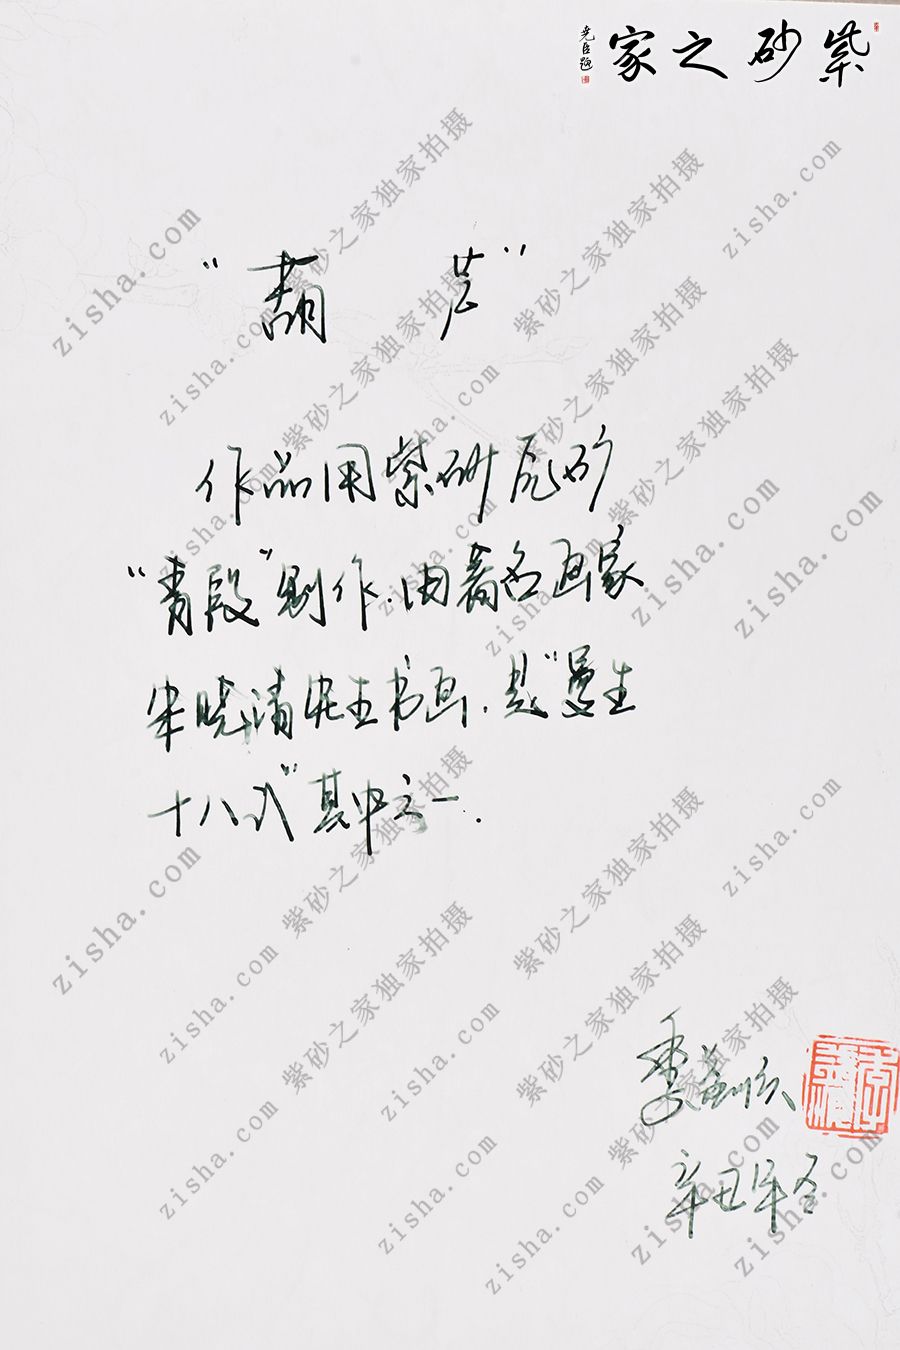 紫砂之家
尧臣题
“葫 芦”
作品用紫砂原矿
“青段”制作.由著名画家
朱晓清先生书画.是“曼生
十八式”其中之一.
季益顺
辛丑年冬
zisha.com
紫砂之家独家拍摄